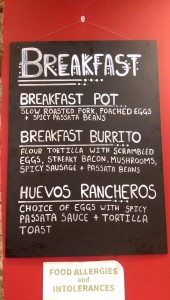 BREAKFAST
BREAKFAST POT...
SLOW ROASTED PORK, POACHED EGGS
+ SPICY PASSATA BEANS
BREAKFAST BURRITO
FLOUR TORTILLA WITH SCRAMBLED
EGGS, STREAKY BACON, MUSHROOMS,
SPICY SAUSAGE + PASSATA BEANS
HUEVOS RANCHEROS
CHOICE OF EGGS WITH SPICY
PASSATA SAUCE + TORTILLA
TOAST
FOOD ALLERGIES
and
INTOLERANCES